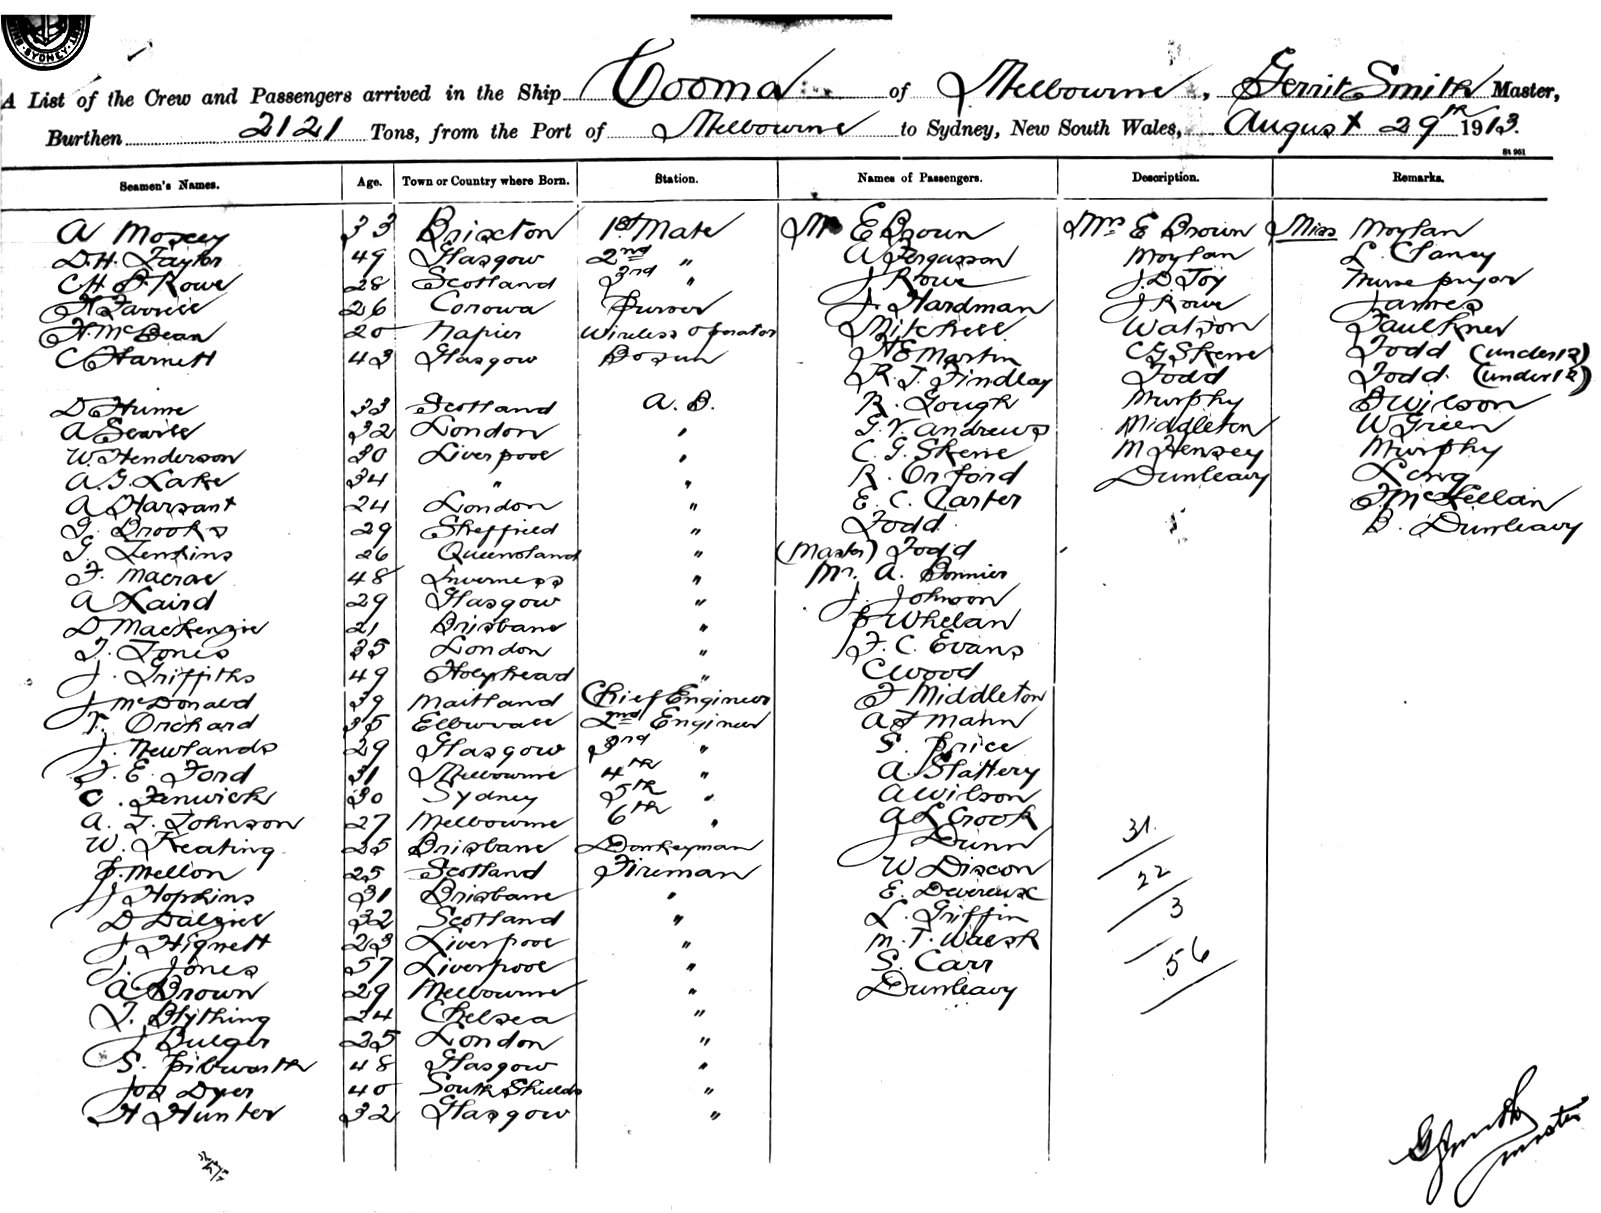 SYDNEY
A List of the Crew and Passengers arrived in the Ship Cooma of Melbourne, Gerrit Smith Master,
Burthen 2121 Tons, from the Port of Melbourne to Sydney, New South Wales, August 29th 1913.
St 961
Seamen's Names. Age. Town or Country where Born. Station. Names of Passengers. Description. Remarks.
A Moxey 33 Brixton 1st Mate Mr E Brown Mrs E Brown Miss Moylan
D.H. Taylor 49 Glasgow 2nd " A Fergusson Moylan L. Clancy
C H Rowe 28 Scotland 3rd " J Rowe J.D. Joy Nurse Pryor
26 Corowa Purser J. Hardman J. Rowe James
H. McBean 20 Napier Wireless Operator Mitchell Watson Faulkner
C Harnett 43 Glasgow Bosun H E Martin C G Skene Todd (under 12)
R. J. Findlay Todd Todd. (under 12)
D Hume 33 Scotland A. B. R. Gough Murphy Wilson
A Sewell 32 London " G. V. Andrews Middleton W Green
W. Henderson 30 Liverpool " C. G. Skene M Hensey Murphy
A. G. Lake 34 " " R. Orford Dunleavy Long
A Harsant 24 London " E. C. Carter McLellan
G. Brooks 29 Sheffield " Todd B. Dunleavy
G. Jenkins 26 Queensland " (Master) Todd
F. Macrae 48 Inverness " Mr. A. Bonnier
A Laird 29 Glasgow " J. Johnson
D MacKenzie 21 Brisbane " P Whelan
T. Jones 35 London " F. C. Evans
J. Griffiths 49 Holyhead " C Wood
J McDonald 39 Maitland Chief Engineer J Middleton
T. Orchard 35 Ebbwvale 2nd Engineer A J Mann
J. Newlands 29 Glasgow 3rd " S. Price
J. E. Ford 31 Melbourne 4th " A. Slattery
C. Fenwick 30 Sydney 5th " A Wilson
A. J. Johnson 27 Melbourne 6th " A L Crook
W. Keating 25 Brisbane Donkeyman J Dunn 31
P. Mellon 25 Scotland Fireman W Discon 22
J Hopkins 31 Brisbane " E. Devereux 3
D Dalziel 32 Scotland " L. Griffin
J Hignett 23 Liverpool " M. T. Walsh 56
J. Jones 57 Liverpool " S. Carr
A Brown 29 Melbourne " Dunleavy
T. Blything 24 Chelsea "
J Bulger 25 London "
S. Pilbworth 48 Glasgow "
Job Dyer 40 South Shields "
H Hunter 32 Glasgow "
G Smith
Master